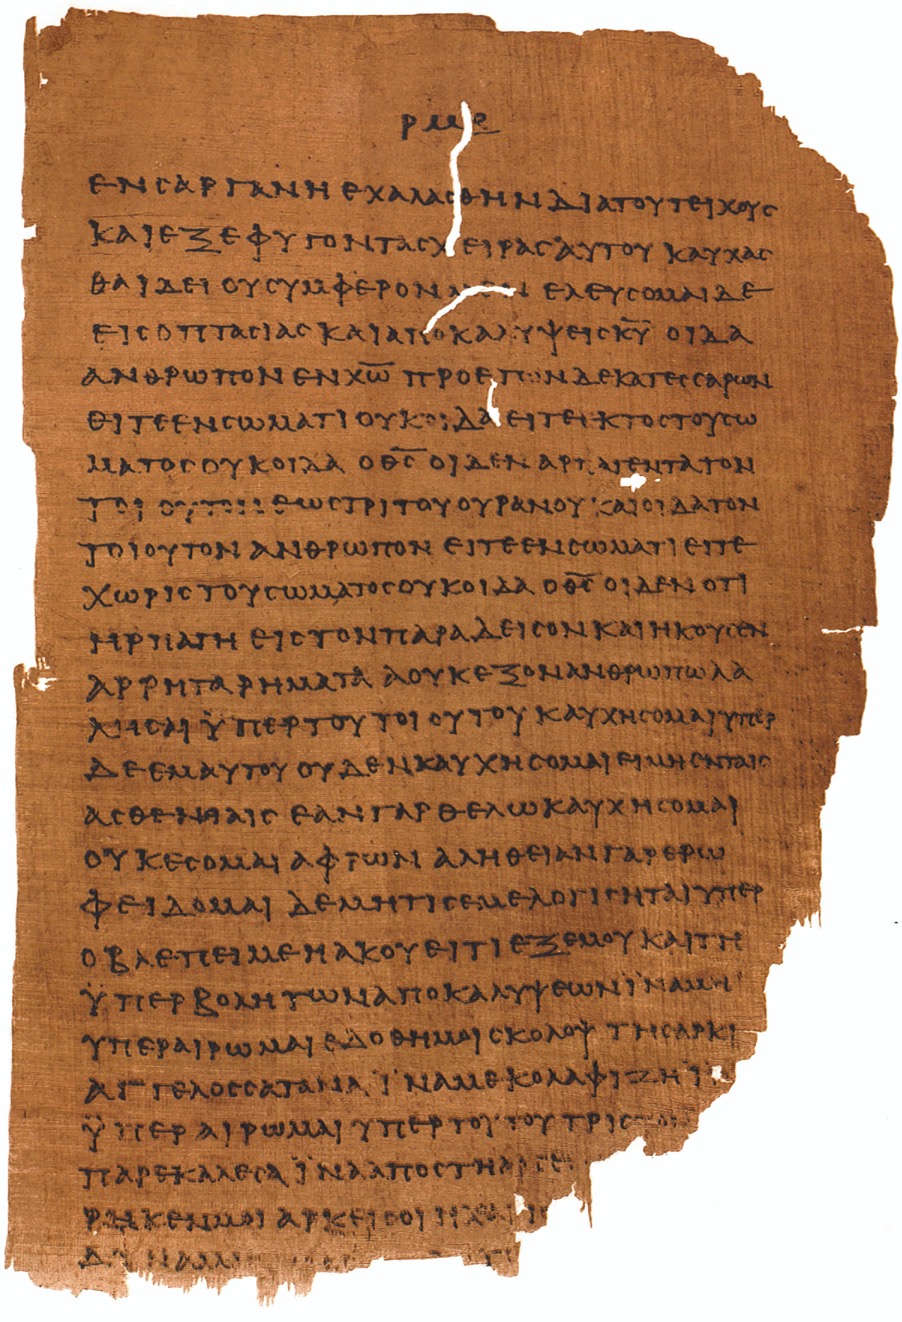 ρμε
ΕΝ CΑΡΓΑΝΗ ΕΧΑΛΑCΘΗΝ ΔΙΑ ΤΟΥ ΤΕΙΧΟΥC
ΚΑΙ ΕΞΕΦΥΓΟΝ ΤΑC ΧΕΙΡΑC ΑΥΤΟΥ ΚΑΥΧΑC
ΘΑΙ ΔΕΙ ΟΥ CΥΜΦΕΡΟΝ ΜΕΝ ΕΛΕΥCΟΜΑΙ ΔΕ
ΕΙC ΟΠΤΑCΙΑC ΚΑΙ ΑΠΟΚΑΛΥΨΕΙC Κ̅Υ̅ ΟΙΔΑ
ΑΝΘΡΩΠΟΝ ΕΝ Χ̅Ω̅ ΠΡΟ ΕΤΩΝ ΔΕΚΑΤΕCCΑΡΩΝ
ΕΙΤΕ ΕΝ CΩΜΑΤΙ ΟΥΚ ΟΙΔΑ ΕΙΤΕ ΕΚΤΟC ΤΟΥ CΩ
ΜΑΤΟC ΟΥΚ ΟΙΔΑ Ο Θ̅C̅ ΟΙΔΕΝ ΑΡΠΑΓΕΝΤΑ ΤΟΝ
ΤΟΙΟΥΤΟΝ ΕΩC ΤΡΙΤΟΥ ΟΥΡΑΝΟΥ ΚΑΙ ΟΙΔΑ ΤΟΝ
ΤΟΙΟΥΤΟΝ ΑΝΘΡΩΠΟΝ ΕΙΤΕ ΕΝ CΩΜΑΤΙ ΕΙΤΕ
ΧΩΡΙC ΤΟΥ CΩΜΑΤΟC ΟΥΚ ΟΙΔΑ Ο Θ̅C̅ ΟΙΔΕΝ ΟΤΙ
ΗΡΠΑΓΗ ΕΙC ΤΟΝ ΠΑΡΑΔΕΙCΟΝ ΚΑΙ ΗΚΟΥCΕΝ
ΑΡΡΗΤΑ ΡΗΜΑΤΑ Α ΟΥΚ ΕΞΟΝ ΑΝΘΡΩΠΩ ΛΑ
ΛΗCΑΙ ΫΠΕΡ ΤΟΥ ΤΟΙΟΥΤΟΥ ΚΑΥΧΗCΟΜΑΙ ΥΠΕΡ
ΔΕ ΕΜΑΥΤΟΥ ΟΥΔΕΝ ΚΑΥΧΗCΟΜΑΙ ΕΙ ΜΗ ΕΝ ΤΑΙC
ΑCΘΕΝΙΑΙC ΕΑΝ ΓΑΡ ΘΕΛΩ ΚΑΥΧΗCΟΜΑΙ
ΟΥΚ ΕCΟΜΑΙ ΑΦΡΩΝ ΑΛΗΘΕΙΑΝ ΓΑΡ ΕΡΩ
ΦΕΙΔΟΜΑΙ ΔΕ ΜΗ ΤΙC ΕΜΕ ΛΟΓΙCΗΤΑΙ ΥΠΕΡ
Ο ΒΛΕΠΕΙ ΜΕ Η ΑΚΟΥΕΙ ΤΙ ΕΞ ΕΜΟΥ ΚΑΙ ΤΗ
ΫΠΕΡΒΟΛΗ ΤΩΝ ΑΠΟΚΑΛΥΨΕΩΝ ΪΝΑ ΜΗ
ΥΠΕΡΑΙΡΩΜΑΙ ΕΔΟΘΗ ΜΟΙ CΚΟΛΟΨ ΤΗ CΑΡΚΙ
ΑΓΓΕΛΟC CΑΤΑΝΑ ΪΝΑ ΜΕ ΚΟΛΑΦΙΖΗ Ϊ
ΫΠΕΡΑΙΡΩΜΑΙ ΥΠΕΡ ΤΟΥΤΟΥ ΤΡΙC
ΠΑΡΕΚΑΛΕCΑ ΪΝΑ ΑΠΟCΤΗ
ΡΗΚΕΝ ΜΟΙ ΑΡΚΕΙ CΟΙ Η ΧΑΡΙ
ΔΥΝΑΜΙ